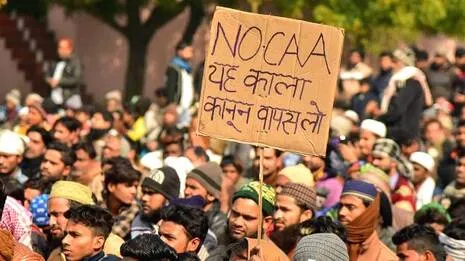 NO·CAA
यह काला
कानून वापस लो